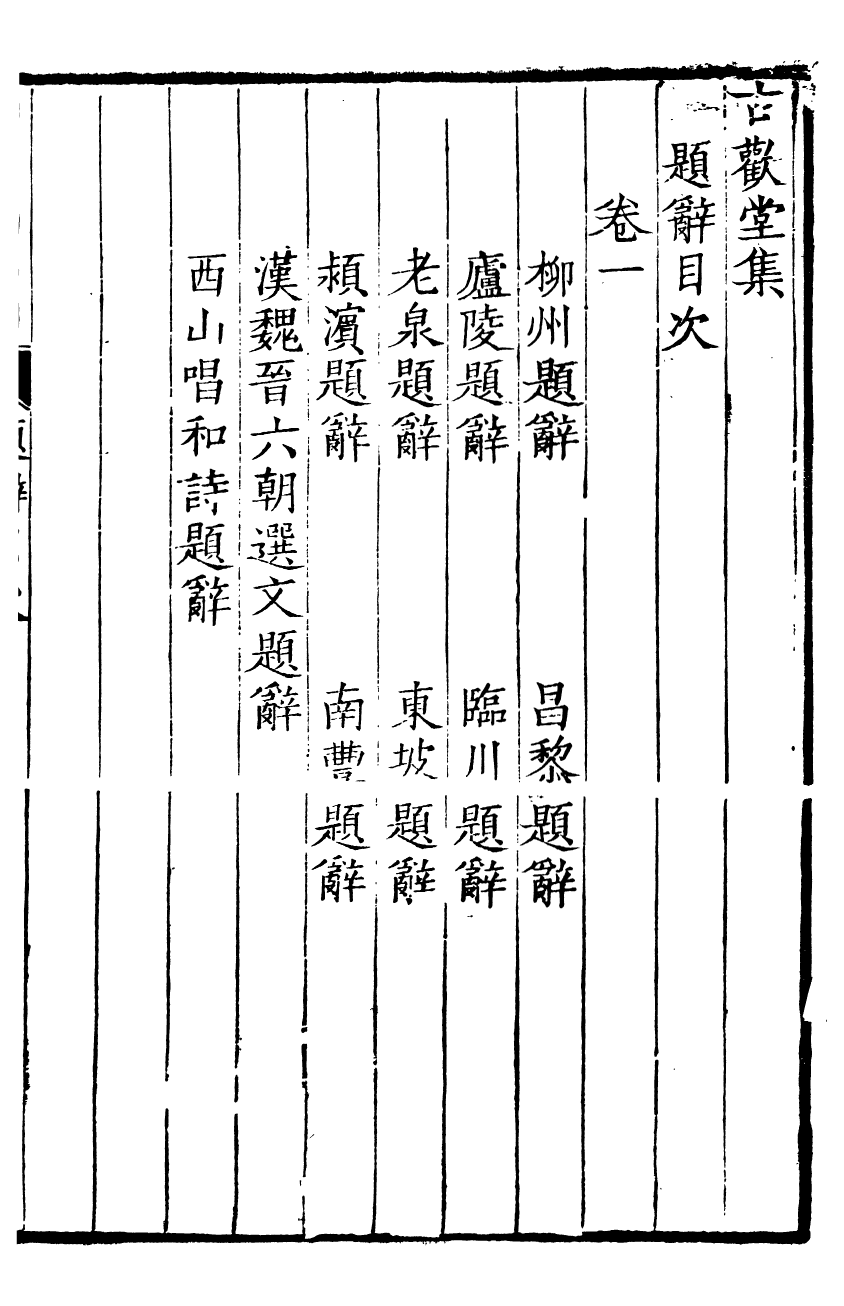 古歡堂集
題辭目次
卷一
柳州題辭　昌黎題辭
廬陵題辭　臨川題辭
老泉題辭　東坡題辭
潁濱題辭　南豐題辭
漢魏晉六朝選文題辭
西山唱和詩題辭